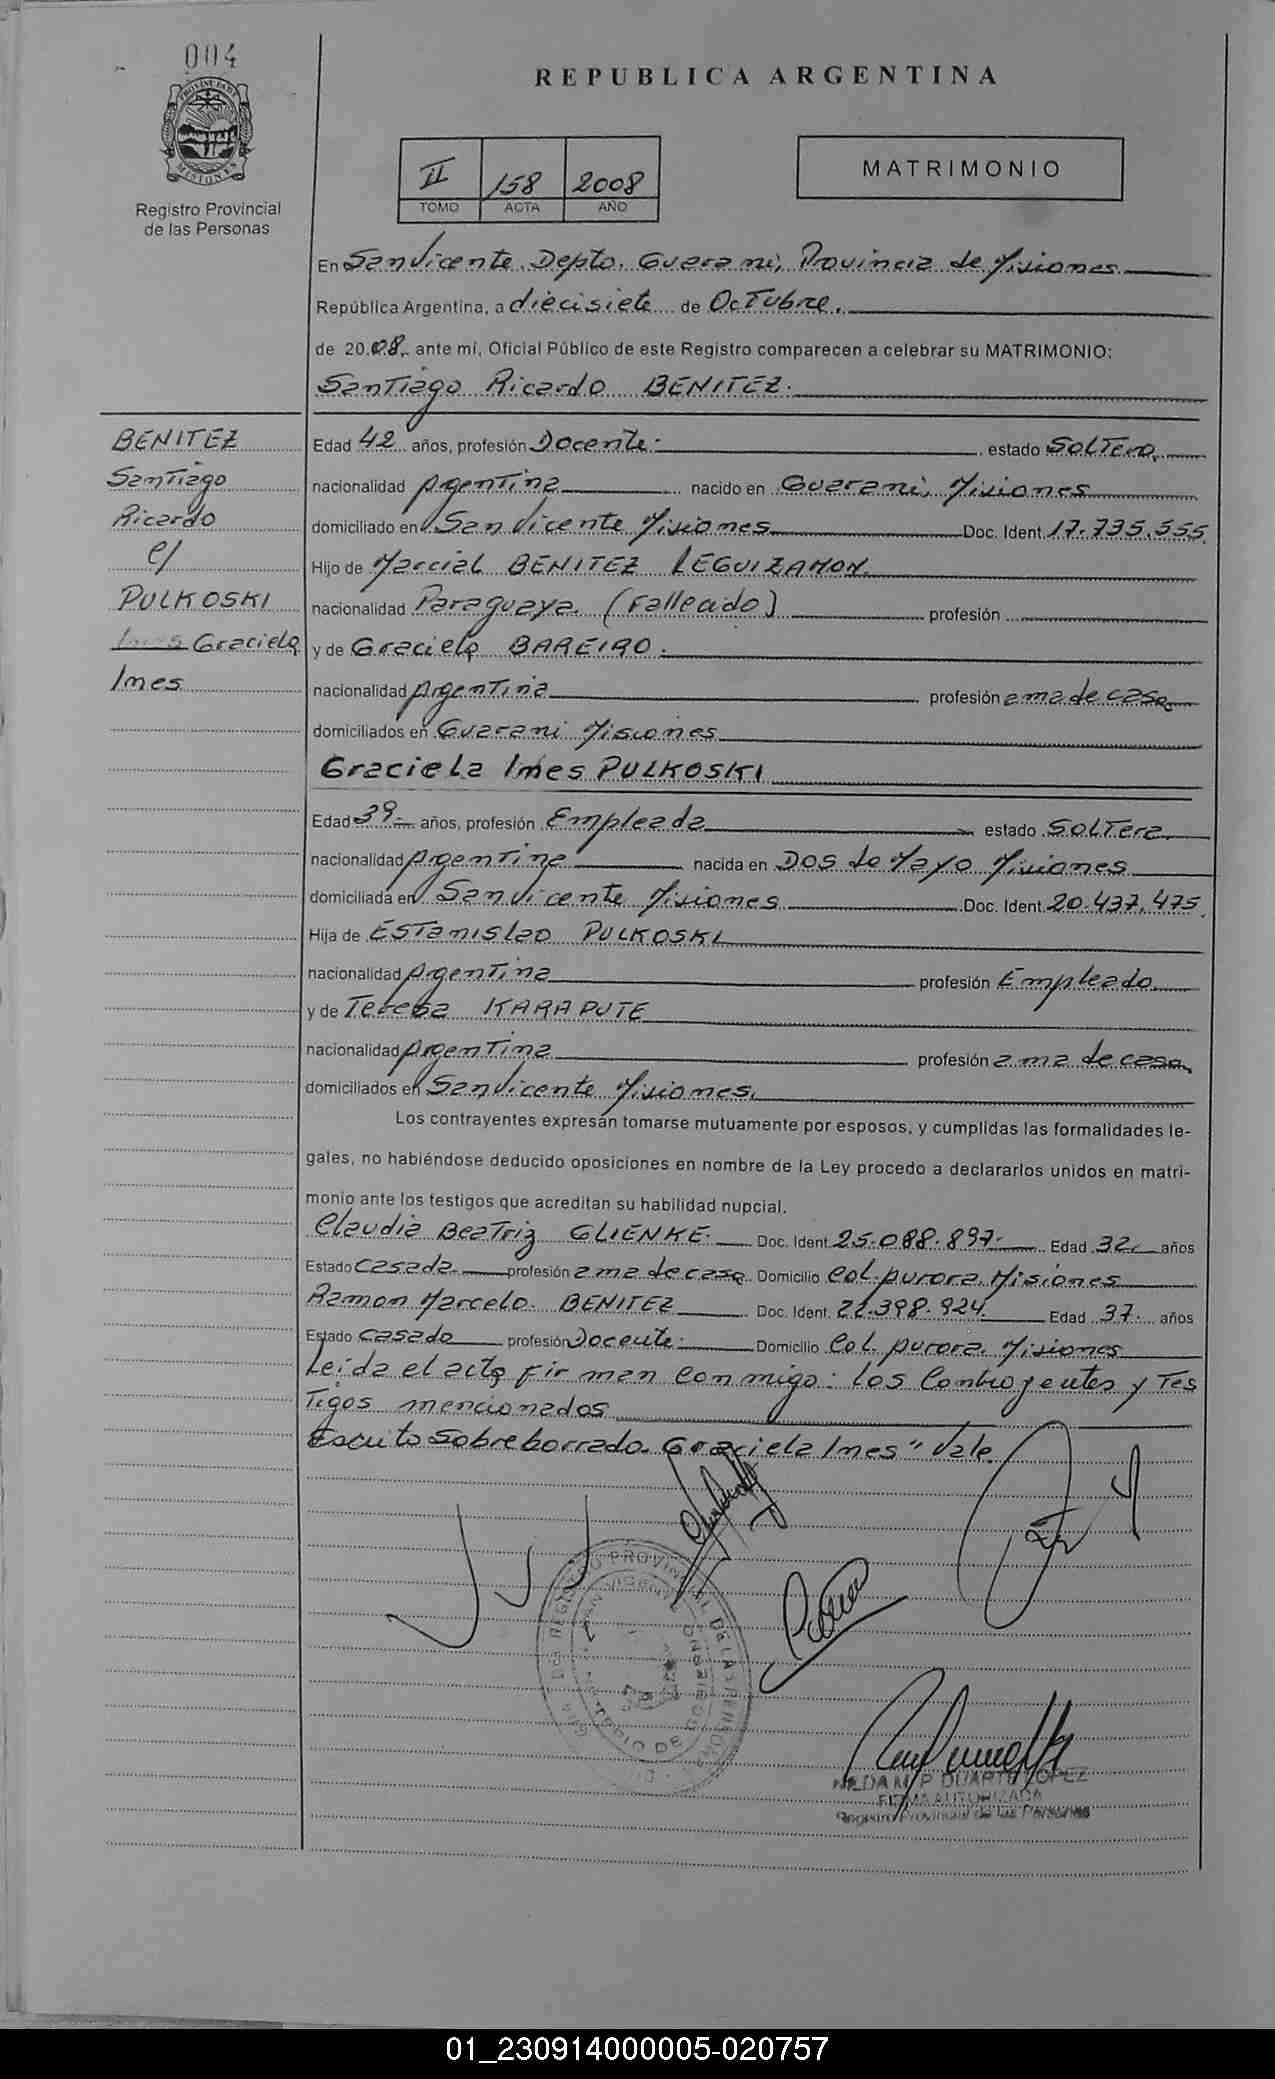 004
REPUBLICA ARGENTINA
MISIONES
Registro Provincial
de las Personas
II 158 2008
TOMO ACTA AÑO
MATRIMONIO
En San Vicente. Depto. Guarani, Provincia de Misiones
República Argentina, a diecisiete de Octubre.
de 20.08. ante mí, Oficial Público de este Registro comparecen a celebrar su MATRIMONIO:
Santiago Ricardo BENITEZ.
BENITEZ
Santiago
Ricardo
c/
PULKOSKI
Ines Graciela
Ines
Edad 42 años, profesión Docente. estado Soltero.
nacionalidad Argentina nacido en Guarani, Misiones
domiciliado en San Vicente Misiones Doc. Ident. 17.735.555.
Hijo de Marcial BENITEZ LEGUIZAMON.
nacionalidad Paraguaya. (Fallecido) profesión
y de Graciela BAREIRO.
nacionalidad Argentina profesión ama de casa.
domiciliados en Guarani Misiones
Graciela Ines PULKOSKI
Edad 39.- años, profesión Empleada estado Soltera
nacionalidad Argentina nacida en Dos de Mayo Misiones
domiciliada en San Vicente Misiones Doc. Ident. 20.437.475.
Hija de Estanislao PULKOSKI
nacionalidad Argentina profesión Empleado
y de Teresa KARAPUTE
nacionalidad Argentina profesión ama de casa.
domiciliados en San Vicente Misiones.
Los contrayentes expresan tomarse mutuamente por esposos, y cumplidas las formalidades le-
gales, no habiéndose deducido oposiciones en nombre de la Ley procedo a declararlos unidos en matri-
monio ante los testigos que acreditan su habilidad nupcial.
Claudia Beatriz GLIENKE. Doc. Ident. 25.088.897. Edad 32. años
Estado Casada. profesión ama de casa Domicilio Col. Aurora. Misiones
Ramon Marcelo. BENITEZ Doc. Ident. 22.398.924. Edad 37. años
Estado Casado profesión Docente. Domicilio Col. Aurora. Misiones
Leida el acta firman conmigo: los Contrayentes y Tes
Tigos mencionados
Escrito sobre borrado. Graciela Ines" Vale.
NILDA M. P. DUARTE LOPEZ
FIRMA AUTORIZADA
Registro Provincial de las Personas
01_230914000005-020757